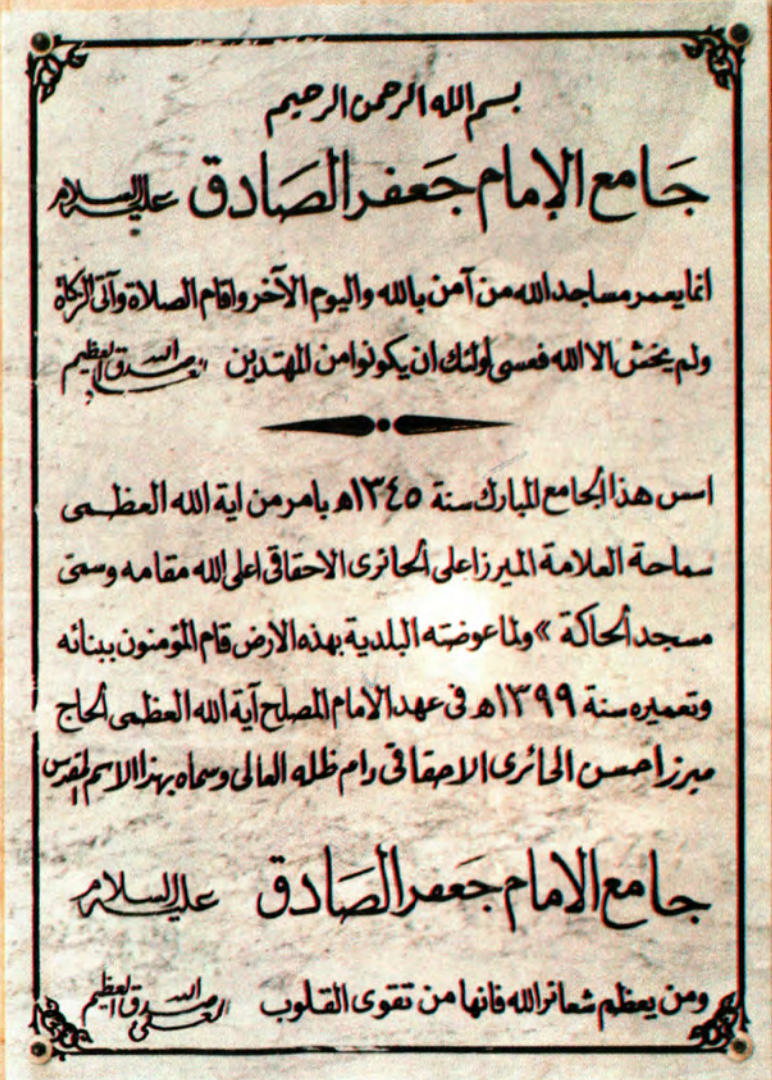 بسم الله الرحمن الرحيم
جَامع الإمام جَعفر الصَادق عليه السلام
انما يعمر مساجد الله من آمن بالله واليوم الآخر واقام الصلاة وآتى الزكاة
ولم يخش الا الله فعسى اولئك ان يكونوا من المهتدين صدق الله العلي العظيم
اسس هذا الجامع المبارك سنة ١٣٤٥هـ بامر من اية الله العظمى
سماحة العلامة الميرزا علي الحائرى الاحقاقي اعلى الله مقامه وسمي
مسجد الحاكة » ولما عوضته البلدية بهذه الارض قام المؤمنون ببنائه
وتعميره سنة ١٣٩٩هـ في عهد الامام المصلح آية الله العظمى الحاج
ميرزا حسن الحائرى الاحقاقي دام ظله العالى وسماه بهذا الاسم المقدس
جامع الامام جَعفر الصَادق عليه السلام
ومن يعظم شعائر الله فانها من تقوى القلوب صدق الله العلي العظيم